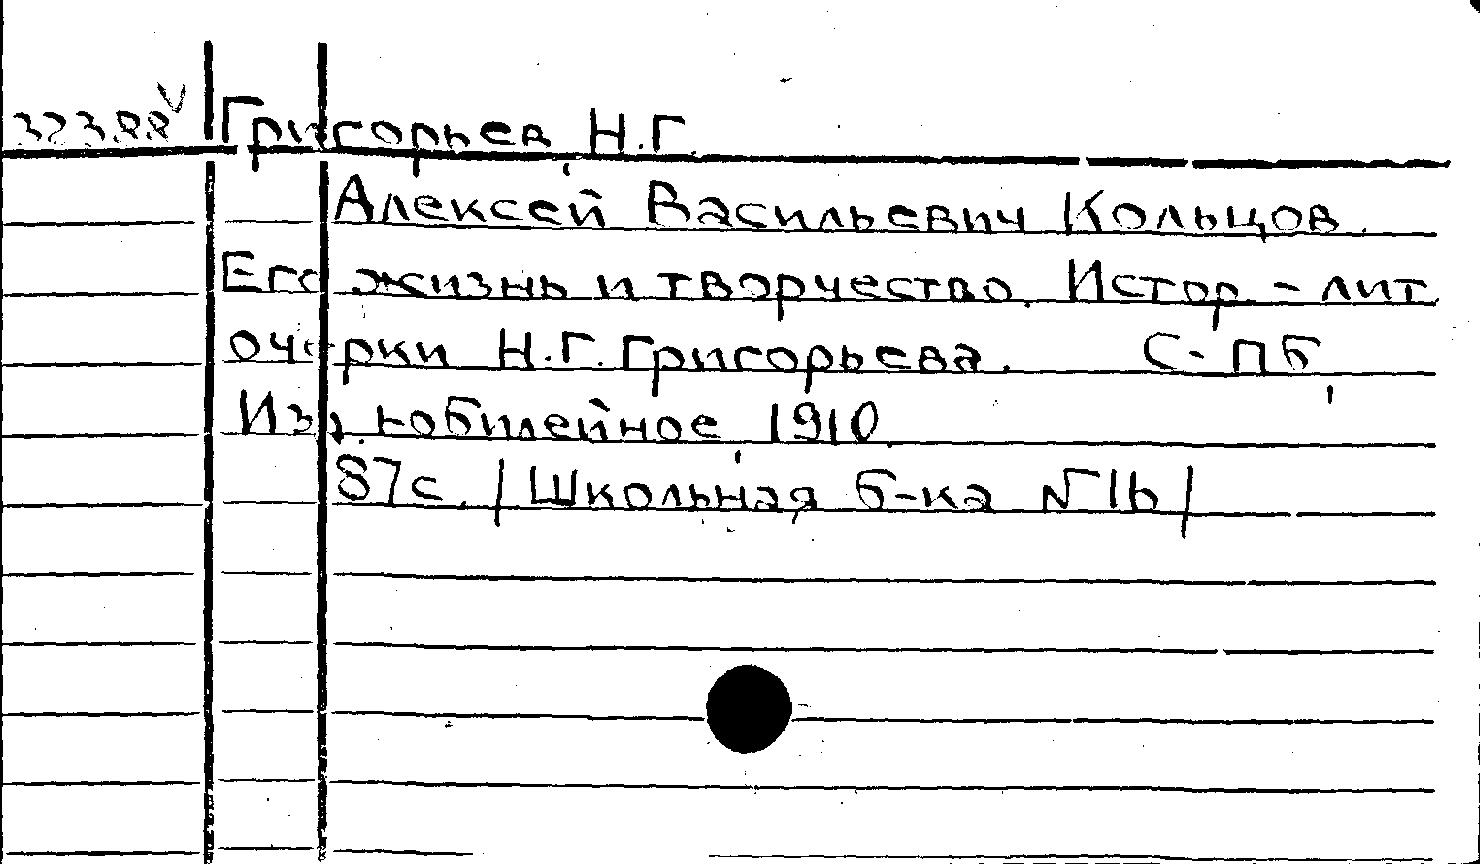 32388 V Григорьев, Н.Г.
Алексей Васильевич Кольцов.
Его жизнь и творчество. Истор. - лит
очерки Н.Г. Григорьева. С-ПБ,
Изд. юбилейное, 1910
87с. /Школьная б-ка N 16/